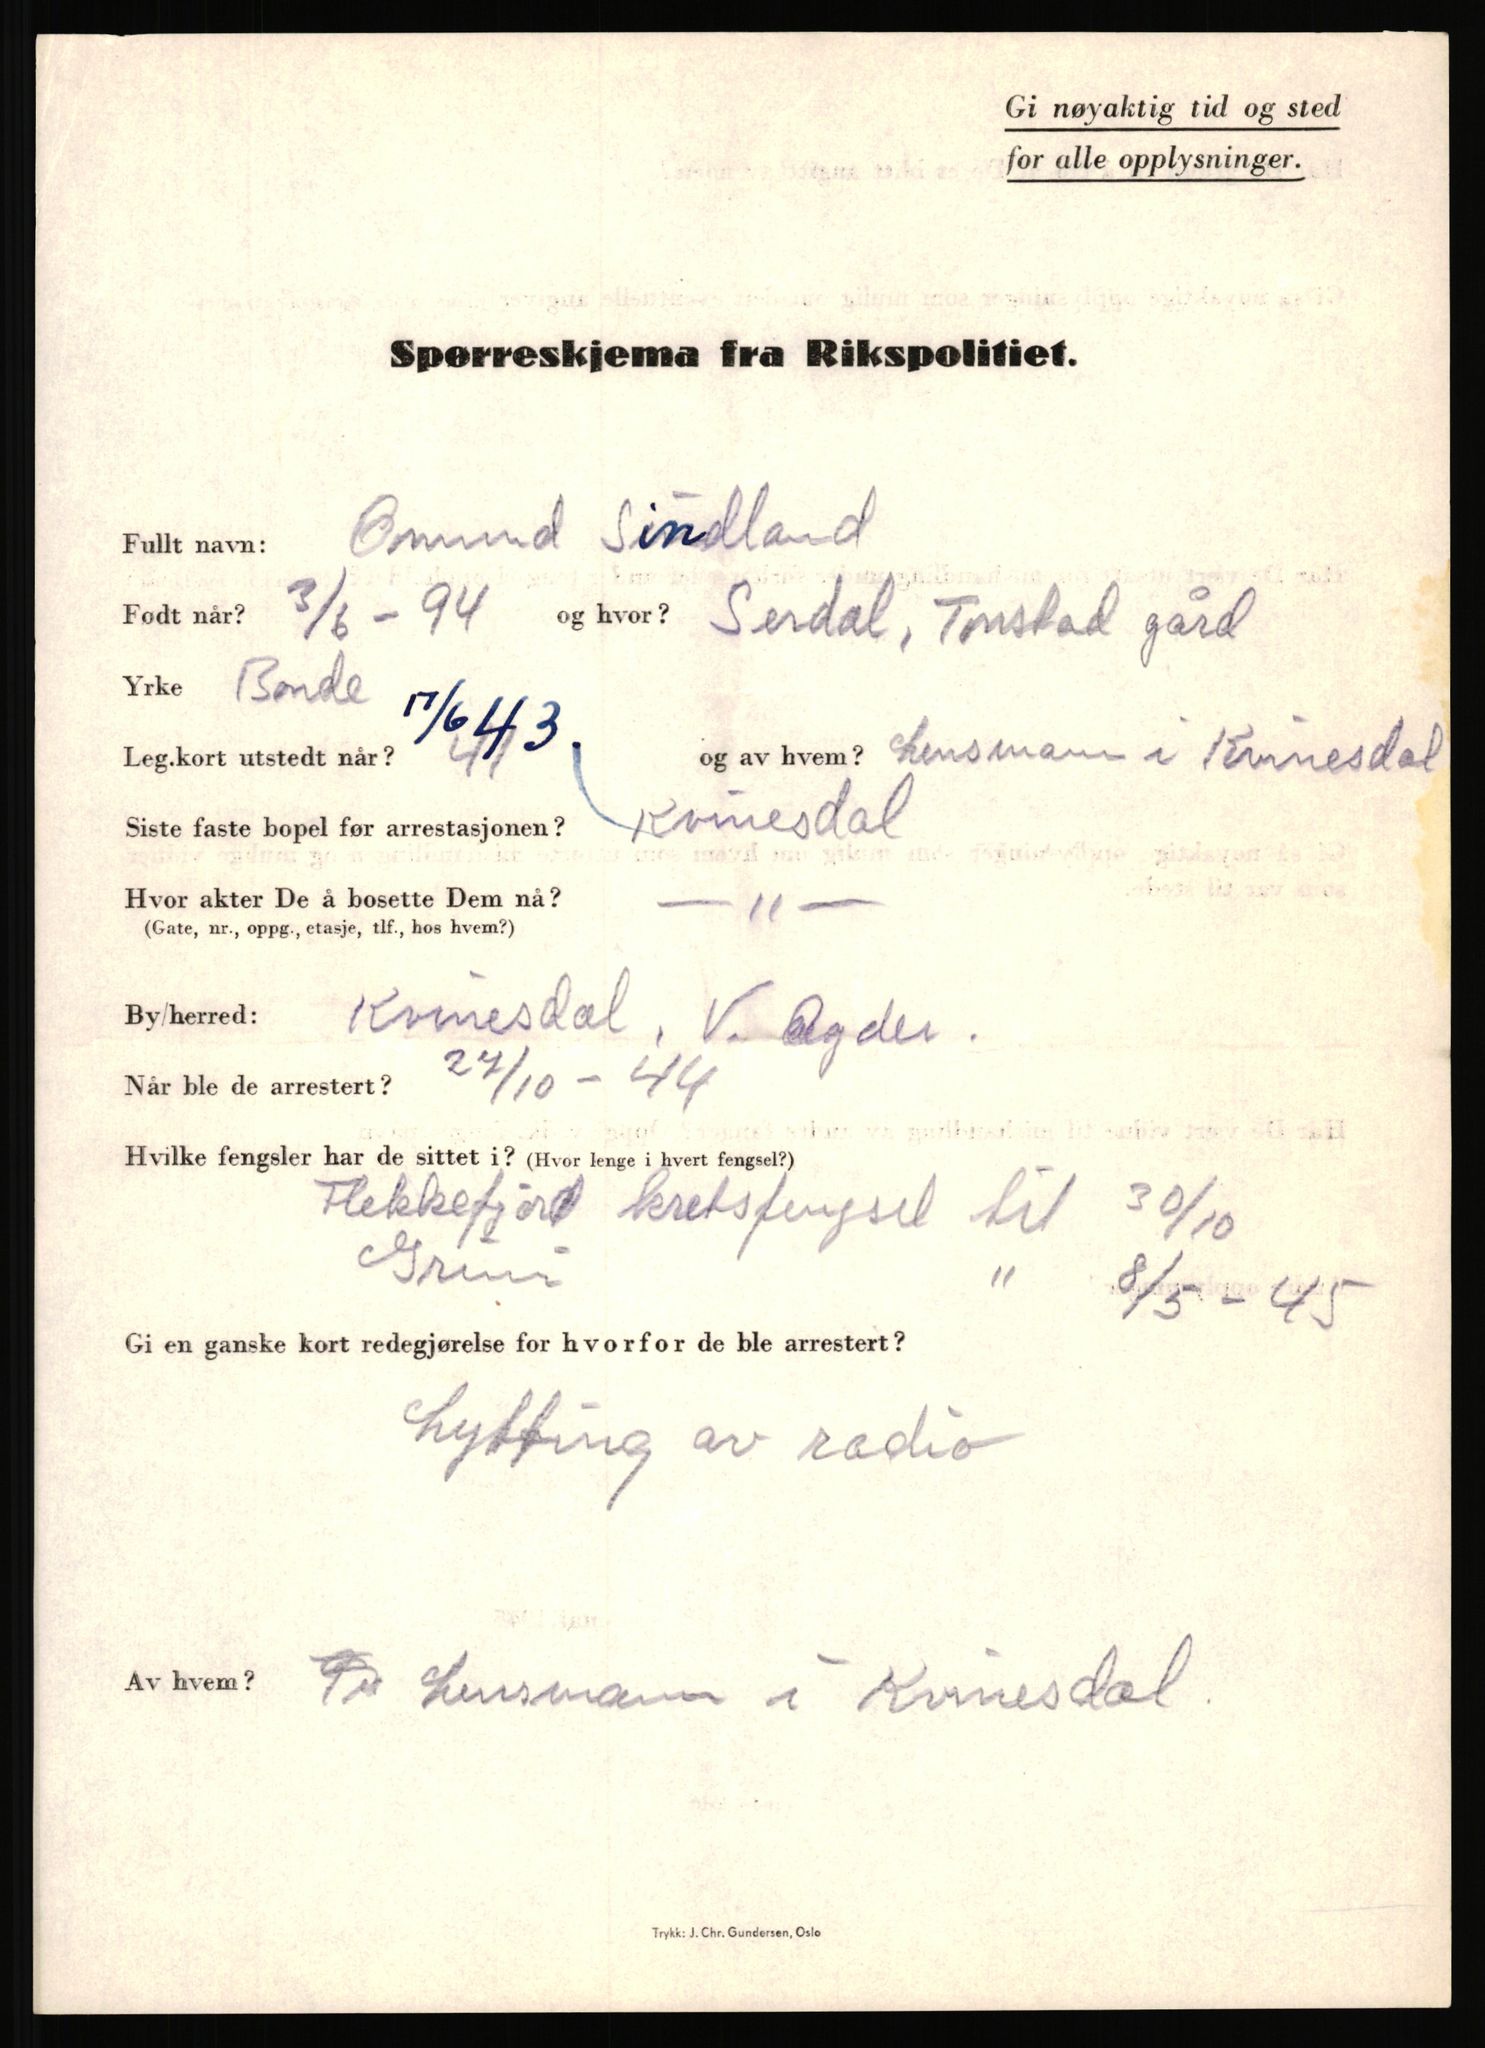 Gi nøyaktig tid og sted
for alle opplysninger.
Spørreskjema fra Rikspolitiet.
Fullt navn: Omund Sindland
Født når? 3/6 - 94 og hvor? Serdal, Tonstad gård
Yrke Bonde
Leg.kort utstedt når? 17/6 43. og av hvem? Lensmann i Kvinesdal
Siste faste bopel før arrestasjonen? Kvinesdal
Hvor akter De å bosette Dem nå? — " —
(Gate, nr., oppg., etasje, tlf., hos hvem?)
By/herred: Kvinesdal, V. Agder.
Når ble de arrestert? 27/10 - 44
Hvilke fengsler har de sittet i? (Hvor lenge i hvert fengsel?)
Flekkefjord kretsfengsel til 30/10
Grini " 8/5 - 45
Gi en ganske kort redegjørelse for hvorfor de ble arrestert?
Lytting av radio
Av hvem? Lensmann i Kvinesdal.
Trykk: J. Chr. Gundersen, Oslo